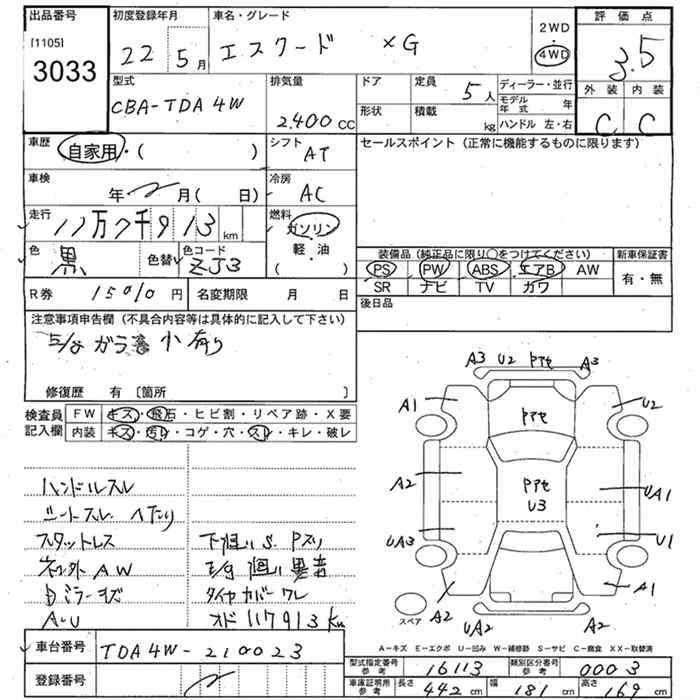 出品番号 初度登録年月 車名・グレード 2WD 評価点
[1105] 22年 5月 エスクード XG 4WD 3.5
3033 外装 内装
型式 排気量 ドア 定員 5人 ディーラー・並行 C C
CBA-TDA4W 2,400cc 形状 積載 kg モデル年式 年
ハンドル 左・右
車歴 自家用・( ) シフト AT セールスポイント (正常に機能するものに限ります)
車検 年 月( 日) 冷房 AC
走行 11万7千913km 燃料 ガソリン
軽・油
( )
色 黒 色替 色コード ZJ3
装備品 (純正品に限り○をつけてください) 新車保証書
PS PW ABS エアB AW 有・無
SR ナビ TV カワ
R券 15010円 名変期限 月 日 後日品
注意事項申告欄 (不具合内容等は具体的に記入して下さい)
ガラ 小 有り
修復歴 有〔箇所 〕
検査員記入欄 FW キズ・飛石・ヒビ割・リペア跡・X要
内装 キズ・汚れ・コゲ・穴・スレ・キレ・破レ
A3 U2 PPセ A3
A1 PPセ U2
A2 PPセ U3 UA1
UA3 U1
A2 A1
UA2 A2
スペア
ハンドルスレ
シートスレ ヘたり
スタットレス 下廻りS. Pスリ
ネジ外AW
タイヤカバーワレ
A・U オド117913km
A-キズ E-エクボ U-凹み W-補修跡 S-サビ C-腐食 XX-取替済
車台番号 TDA4W-210023
登録番号
型式指定番号 参考 16113 類別区分番号 参考 0003
車庫証明用 参考 長さ 442cm 幅 181cm 高さ 169cm